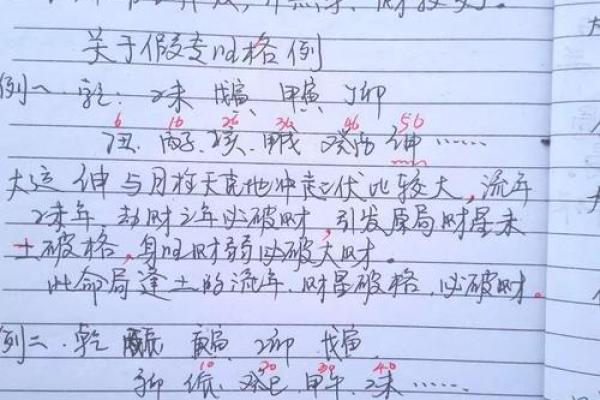 关于假专旺格例
例一、乾: 乙未 戊寅、甲寅 丁卯
6 16 26 36 46 56
丁丑、丙子、乙亥、甲戌 癸酉 壬申……
大运壬申与月柱天克地冲起伏比较大,流年
乙未年 劫财之年必破财,引发原局财星未
土破格,身旺财弱必破大财。
此命局逢土的流年,财星破格,必破财。
例二、乾 庚寅 乙卯 戊寅
10 20 30 40
辛卯 壬辰、癸巳 甲午、乙未……